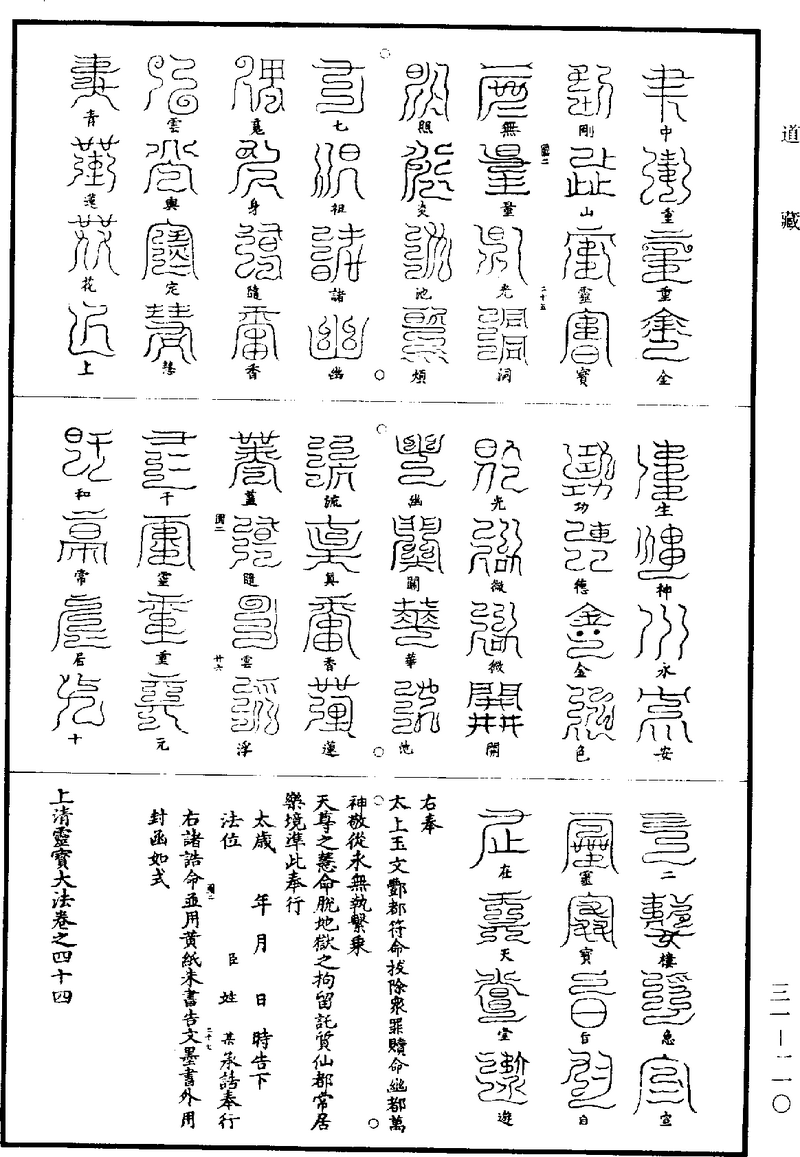 道藏
中重重金
剛山靈寶
無量光洞
照炎池煩
七祖諸幽
魂身隨香
雲輿定慧
青蓮花上
二十五
生神永安
功德金色
光微微開
幽關華池
流真香蓮
蓋隨雲浮
廿六
千靈重元
和常居十
二樓急宣
靈寶旨自
在天堂遊
右奉
太上玉文酆都符命拔除衆罪贖命幽都萬
神敬從永無執繫乘
天尊之慧命脫地獄之拘留託質仙都常居
樂境準此奉行
太歲 年 月 日 時告下
法位 臣 姓 某承誥奉行
二十七
右諸誥命並用黃紙朱書告文墨書外用
封函如式
上清靈寶大法卷之四十四
三一—一一〇